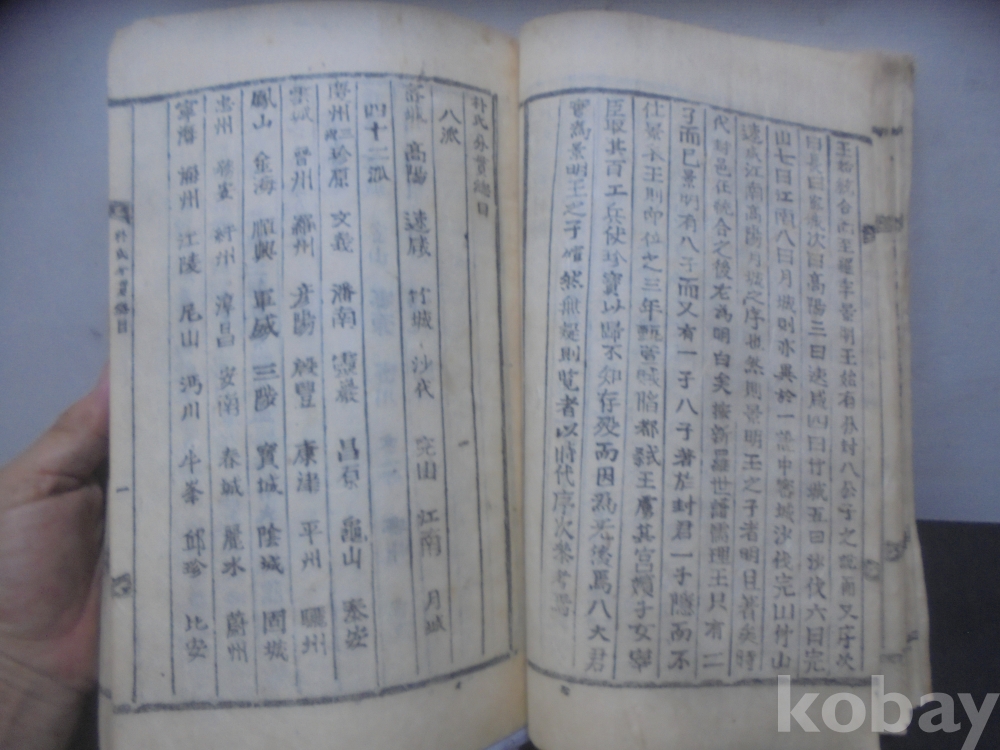 王初統合而至羅季景明王始有分封八公子之說而又序次
曰長曰密城次曰高陽三曰速咸四曰竹城五曰沙伐六曰完
山七曰江南八曰月城則亦異於一說中密城沙伐完山竹山
速咸江南高陽月城之序也然則景明王之子者明白著矣特
代封邑在統合之後尤爲明白矣按新羅世譜儒理王只有二
子而已景明有八子而又有一子八子著於封君一子隱而不
仕景哀王則即位之三年甄萱賊陷都弑王虜其宮嬪子女宰
臣取其百工兵仗珍寶以歸不知存歿而因爲八大君
實爲景明王之子確然無疑則覽者以時代序次樂考焉
朴氏分貫總目
八派
密城 高陽 速咸 竹城 沙代 完山 江南 月城
四十二派
春川 文義 潘南 靈巖 昌原 龜山 泰安
雲城 晉州 羅州 彦陽 咸豐 康津 平州 驪州
鳳山 金海 順興 軍威 三陟 寶城 陰城 固城
忠州 和州 潭昌 安南 春城 麗水 蔚州
寧海 福州 江陵 尼山 沔川 牛峯 珍 比安
朴氏分貫總目
一
kobay